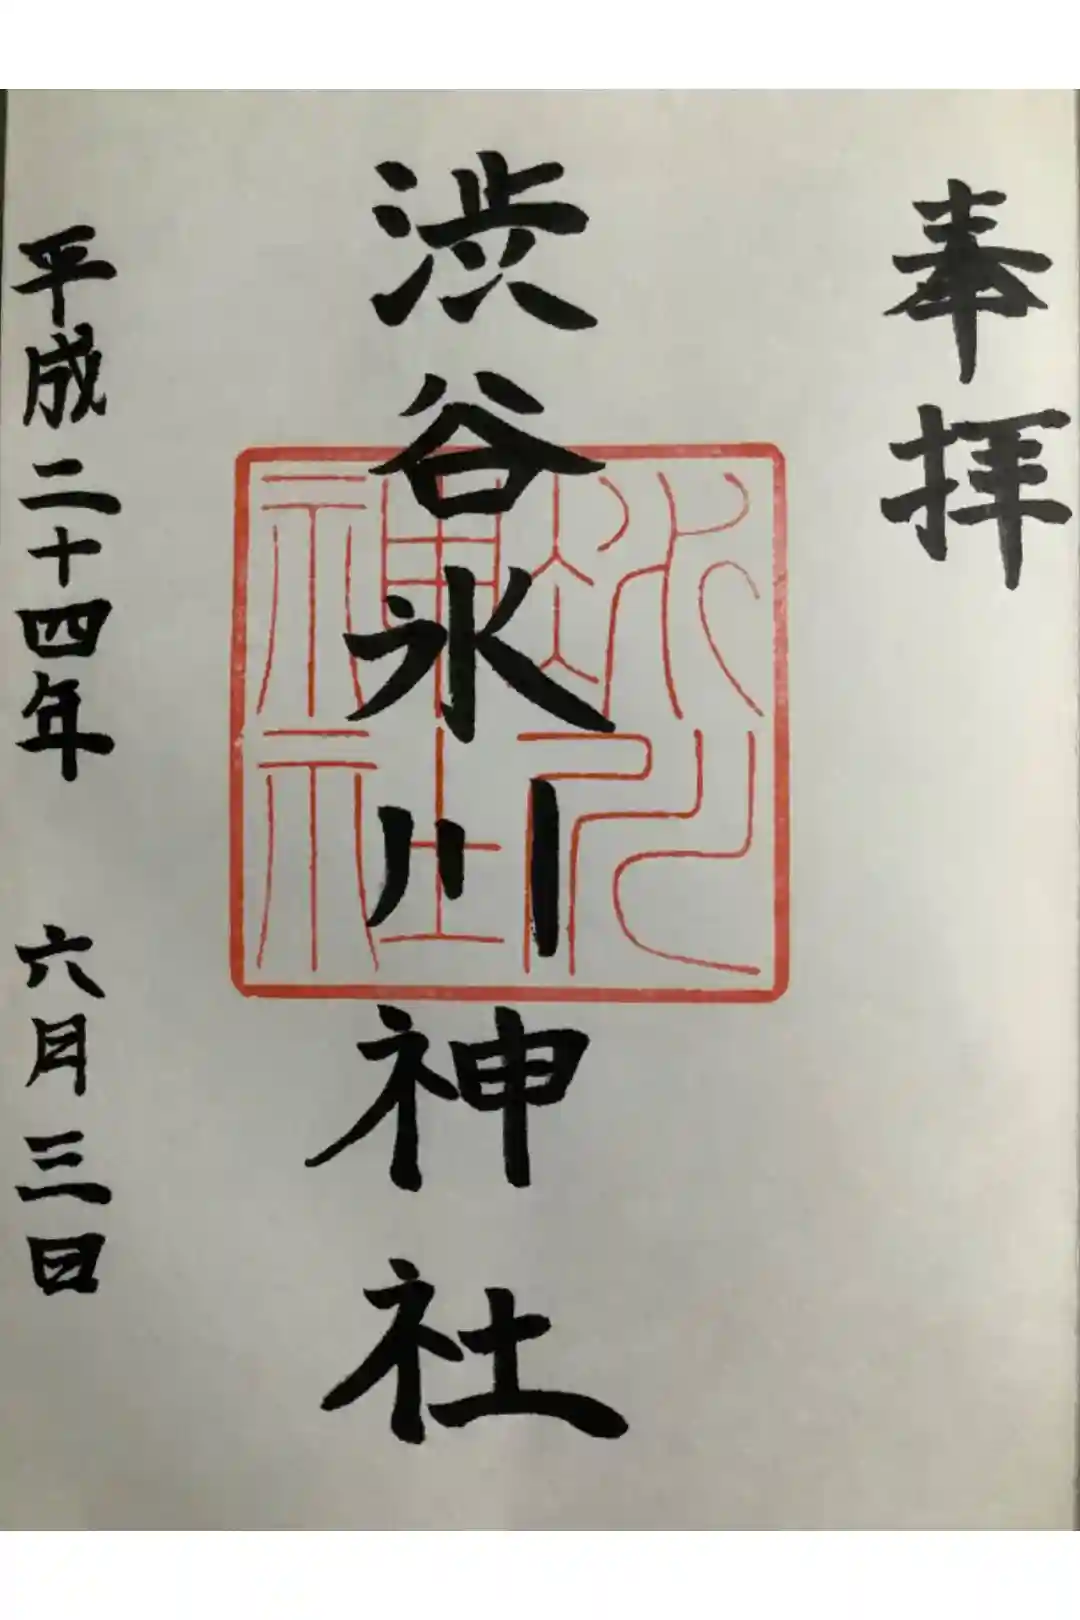 奉拝
渋谷氷川神社
平成二十四年 六月三日
氷川
神社